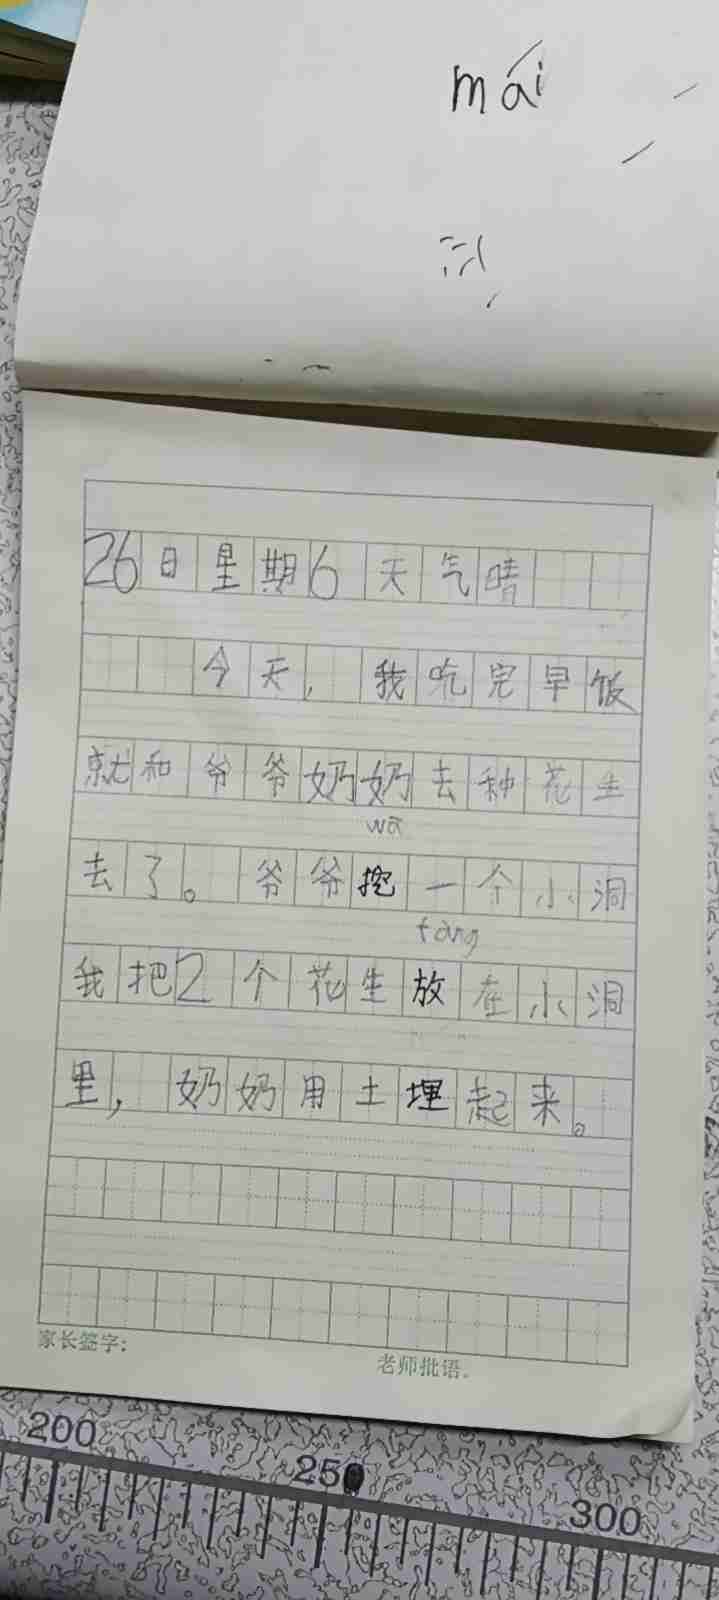 mái
26日星期6 天气晴
今天，我吃完早饭
就和爷爷奶奶去种花生
wā
去了。爷爷挖一个小洞
fàng
我把2个花生放在小洞
里，奶奶用土埋起来。
家长签字：
老师批语。
200 250 300